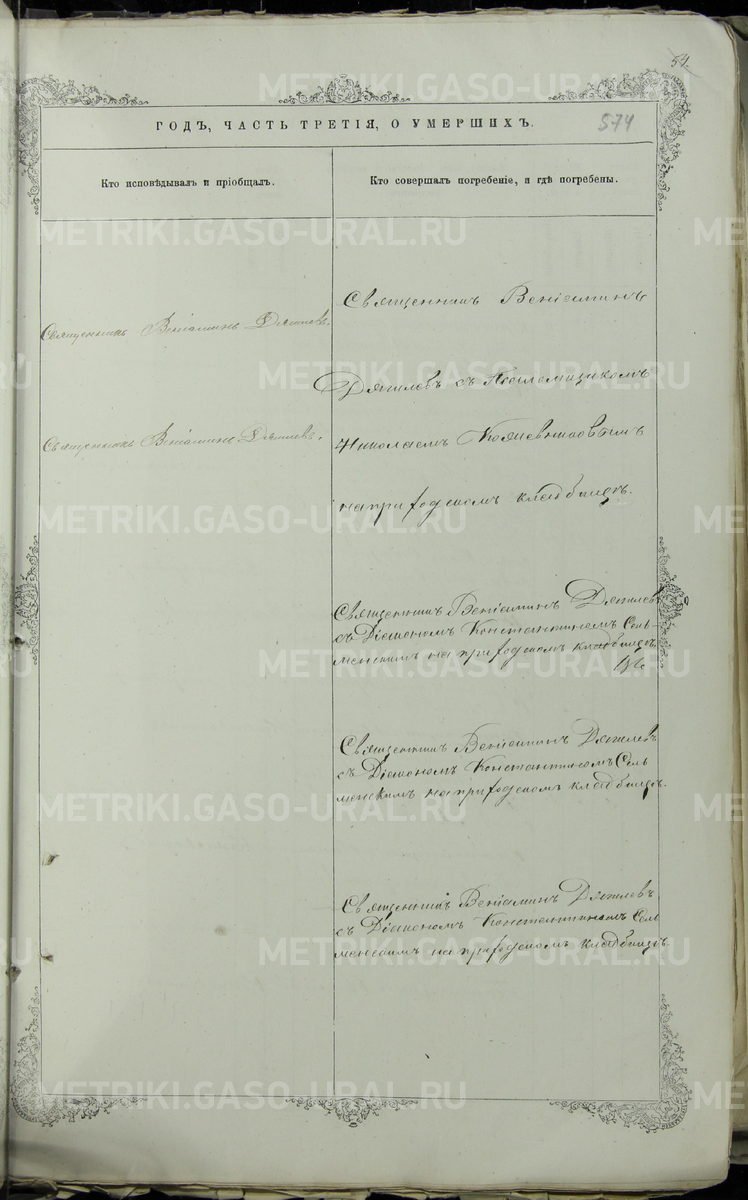 54.
ГОДЪ, ЧАСТЬ ТРЕТІЯ, О УМЕРШИХЪ.
574
Кто исповѣдывалъ и пріобщалъ.
Кто совершалъ погребеніе, и гдѣ погребены.
Священникъ Веніаминъ Дягилевъ.
Священникъ Веніаминъ Дягилевъ.
Священникъ Веніаминъ
Дягилевъ съ Псаломщикомъ
Николаемъ
на приходскомъ кладбищѣ.
Священникъ Веніаминъ Дягилевъ
съ Діакономъ Константиномъ Сель-
менскимъ на приходскомъ кладбищѣ.
Священникъ Веніаминъ Дягилевъ
съ Діакономъ Константиномъ Сель
менскимъ на приходскомъ кладбищѣ.
Священникъ Веніаминъ Дягилевъ
съ Діакономъ Константиномъ Сель
менскимъ на приходскомъ кладбищѣ.
METRIKI.GASO-URAL.RU